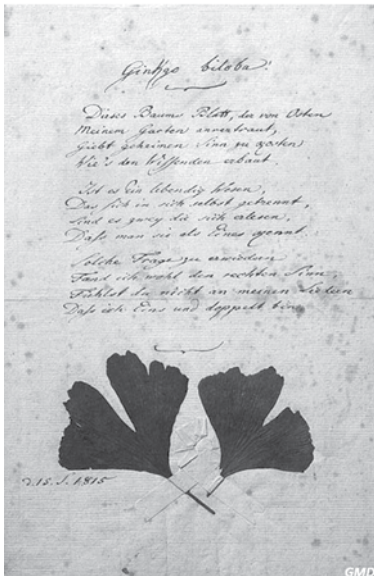 Ginkgo biloba.
Dieses Baums Blatt, der von Osten
Meinem Garten anvertraut,
Giebt geheimen Sinn zu kosten
Wie's den Wissenden erbaut.
Ist es Ein lebendig Wesen,
Das sich in sich selbst getrennt,
Sind es zwey die sich erlesen,
Dass man sie als Eines kennt.
Solche Frage zu erwiedern
Fand ich wohl den rechten Sinn;
Fühlst du nicht an meinen Liedern
Dass ich Eins und doppelt bin.
d. 15. S. 1815
GMD